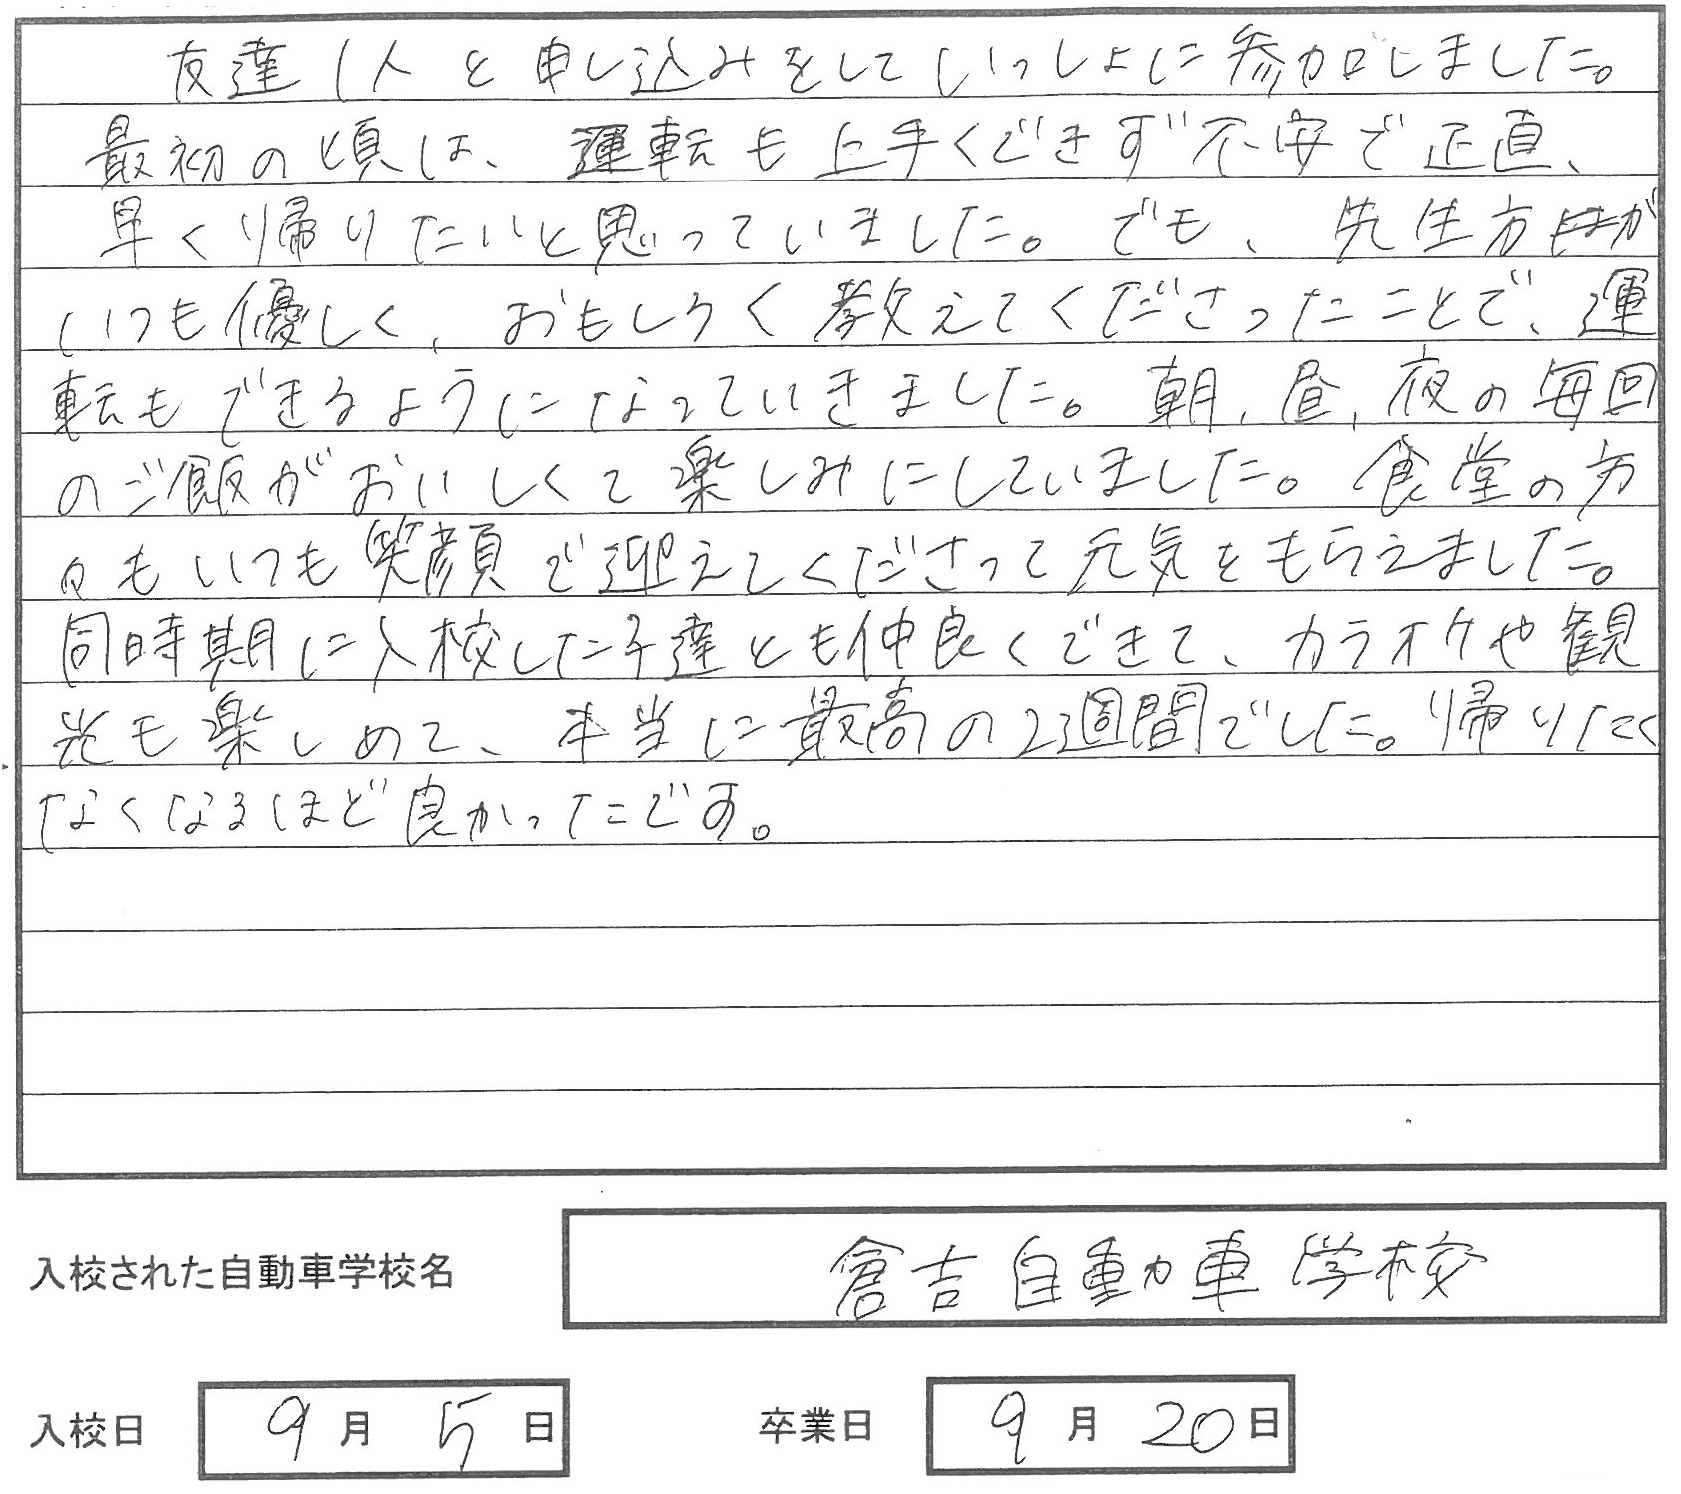 友達1人と申し込みをしていっしょに参加しました。
最初の頃は、運転も上手くできず不安で正直、
早く帰りたいと思っていました。でも、先生方が
いつも優しく、おもしろく教えてくださったことで、運
転もできるようになっていきました。朝、昼、夜の毎回
のご飯がおいしくて楽しみにしていました。食堂の方
々もいつも笑顔で迎えてくださって元気をもらえました。
同時期に入校した子達とも仲良くできて、カラオケや観
光も楽しめて、本当に最高の2週間でした。帰りたく
なくなるほど良かったです。
入校された自動車学校名 倉吉自動車学校
入校日 9月5日 卒業日 9月20日